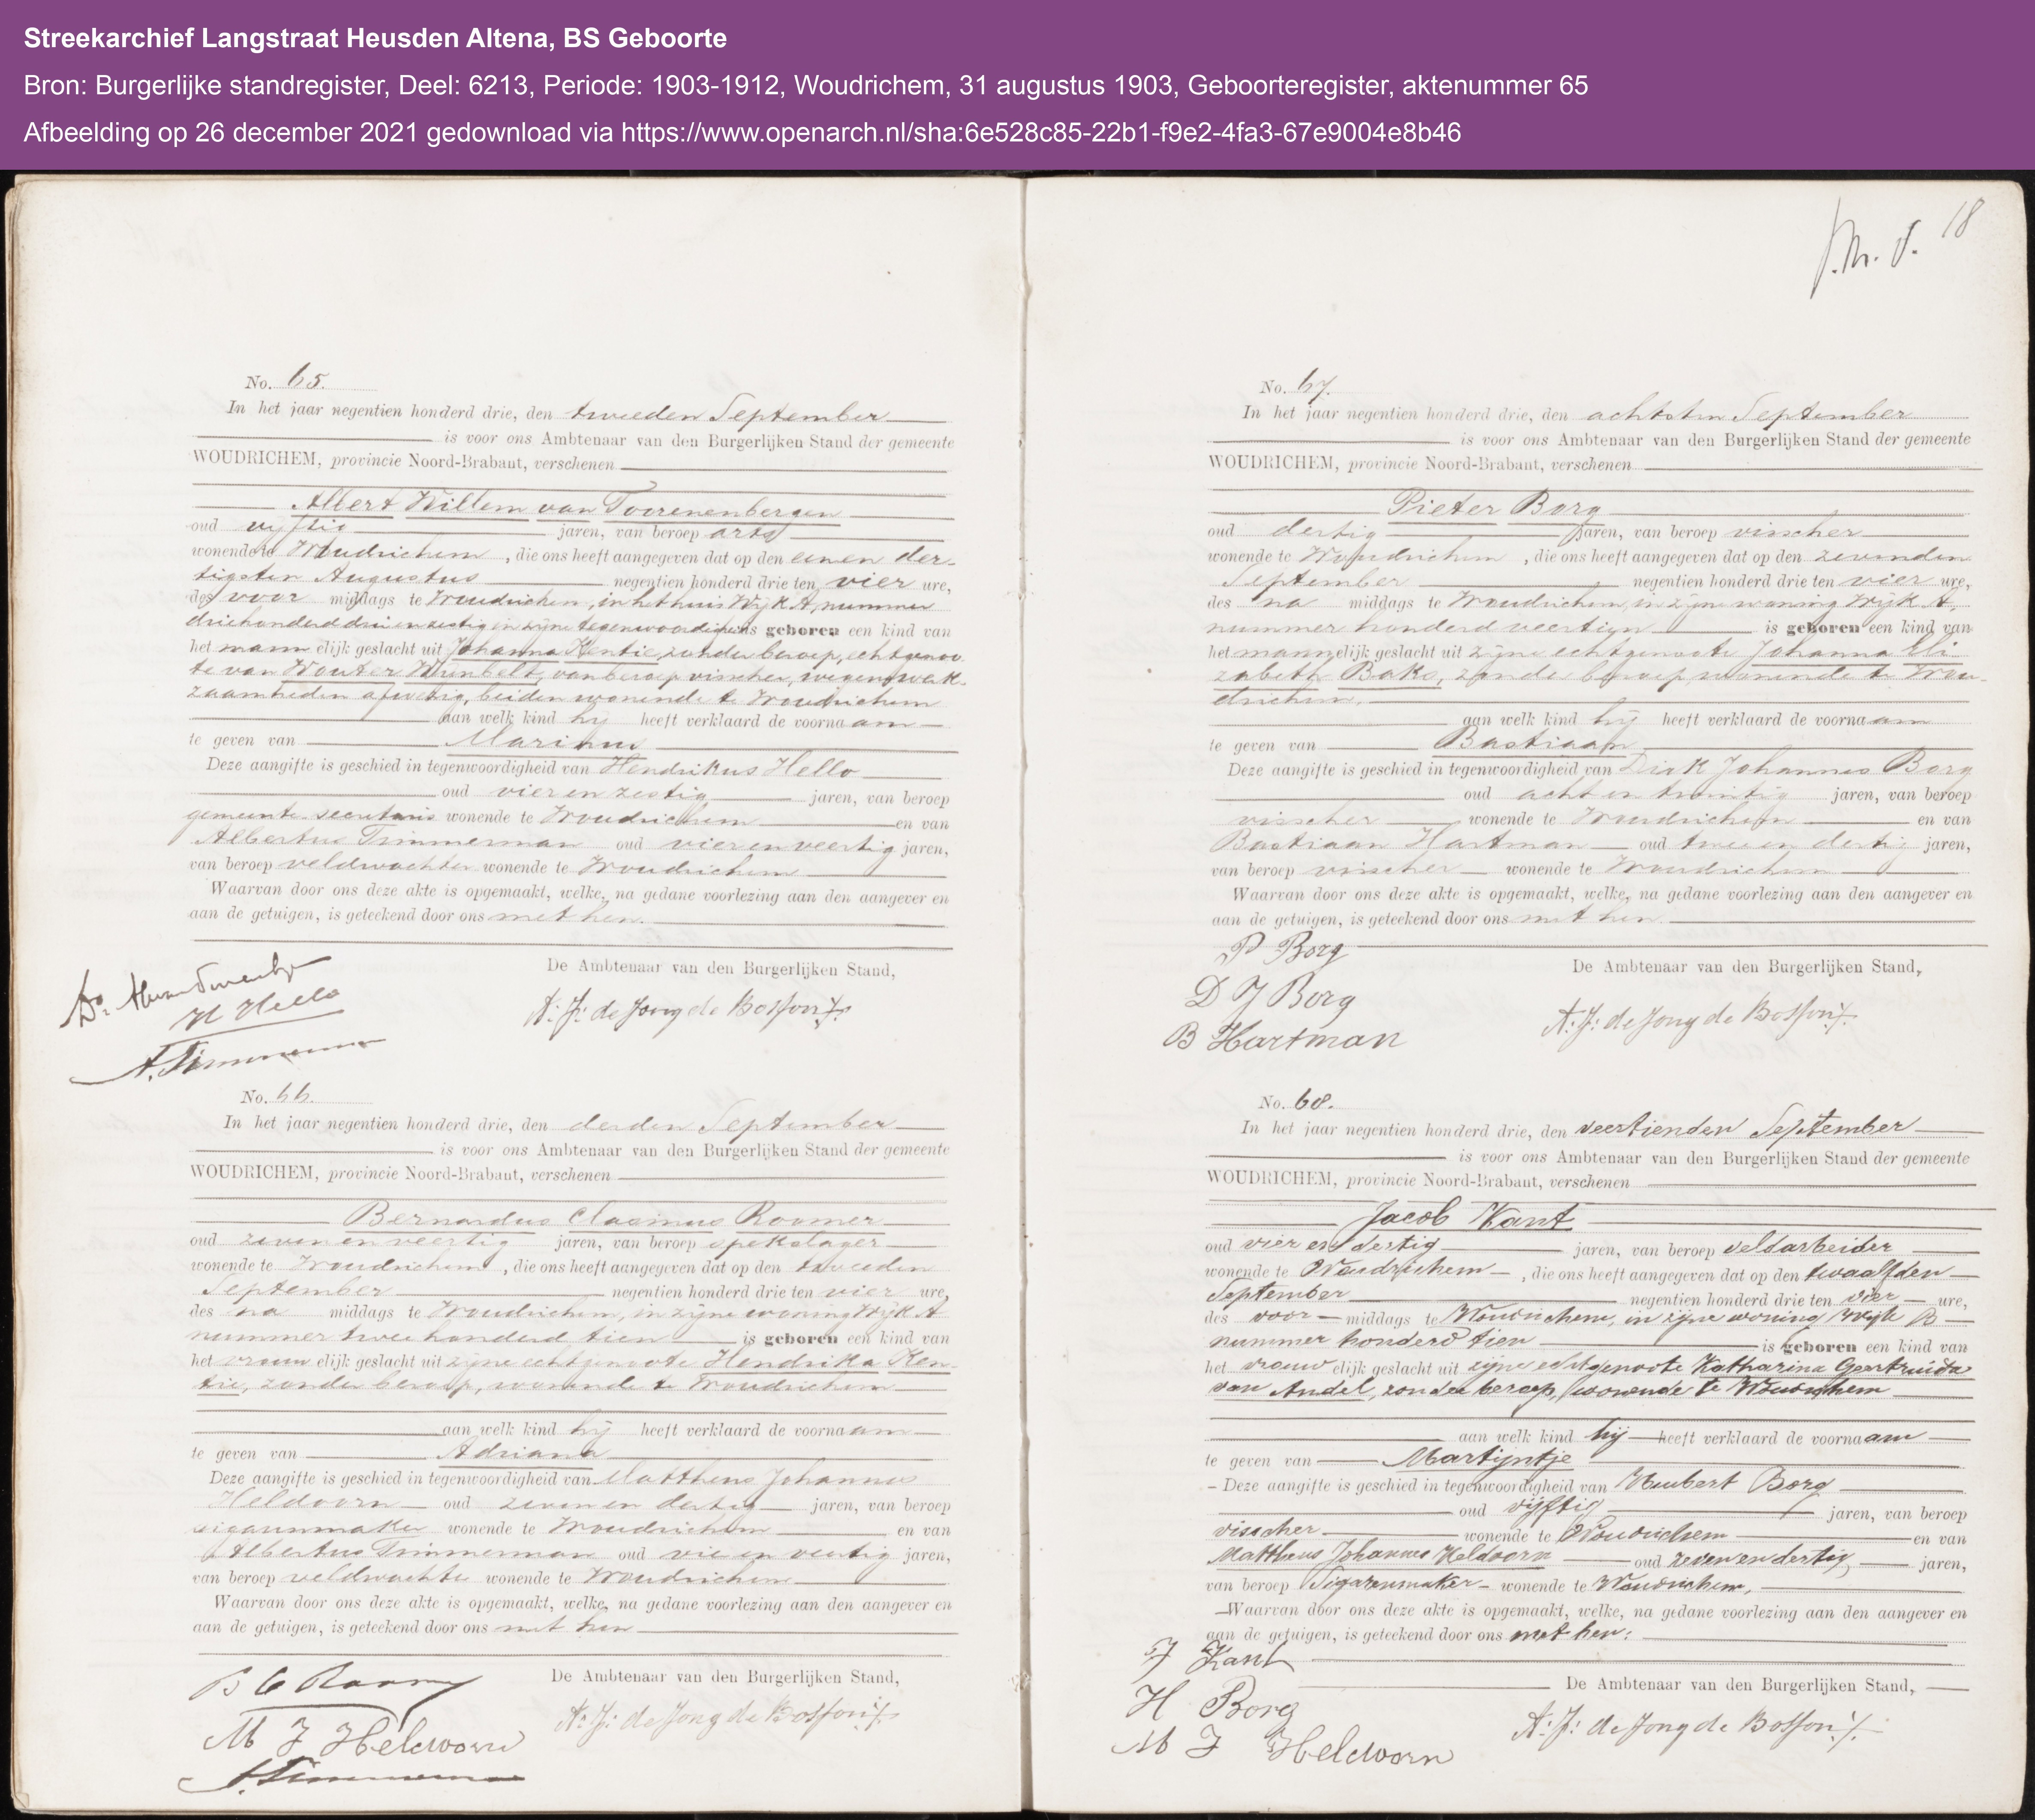 Streekarchief Langstraat Heusden Altena, BS Geboorte
Bron: Burgerlijke standregister, Deel: 6213, Periode: 1903-1912, Woudrichem, 31 augustus 1903, Geboorteregister, aktenummer 65
Afbeelding op 26 december 2021 gedownload via https://www.openarch.nl/sha:6e528c85-22b1-f9e2-4fa3-67e9004e8b46
No. 65.
In het jaar negentien honderd drie, den tweeden September
is voor ons Ambtenaar van den Burgerlijken Stand der gemeente
WOUDRICHEM, provincie Noord-Brabant, verschenen
Albert Willem van Toorenenbergen
oud vijftig jaren, van beroep arts
wonende te Woudrichem, die ons heeft aangegeven dat op den eenen der-
tigsten Augustus negentien honderd drie ten vier ure,
des voor middags te Woudrichem, in het huis Wijk A, nummer
driehonderd drie en zestig in zijne tegenwoordigheid is geboren een kind van
het mannelijk geslacht uit Johanna Kentie, zonder beroep, echtgenoo-
te van Wouter, van beroep visscher, wegens werk-
zaamheden afwezig, beiden wonende te Woudrichem
aan welk kind hij heeft verklaard de voornaam
te geven van Marinus
Deze aangifte is geschied in tegenwoordigheid van Hendrikus Hello
oud vier en zestig jaren, van beroep
gemeente-secretaris wonende te Woudrichem en van
Albertus Timmerman oud vier en veertig jaren,
van beroep veldwachter wonende te Woudrichem
Waarvan door ons deze akte is opgemaakt, welke, na gedane voorlezing aan den aangever en
aan de getuigen, is geteekend door ons met hen.
De Ambtenaar van den Burgerlijken Stand,
H Hello
A. J. de Jong de Bosson
A. Timmerman
No. 66.
In het jaar negentien honderd drie, den derden September
is voor ons Ambtenaar van den Burgerlijken Stand der gemeente
WOUDRICHEM, provincie Noord-Brabant, verschenen
Bernardus Clasinus Roomer
oud zeven en veertig jaren, van beroep spekslager
wonende te Woudrichem, die ons heeft aangegeven dat op den tweeden
September negentien honderd drie ten vier ure,
des na middags te Woudrichem, in zijne woning Wijk A
nummer twee honderd tien is geboren een kind van
het vrouwelijk geslacht uit zijne echtgenoote Hendrika Ken-
tie, zonder beroep, wonende te Woudrichem
aan welk kind hij heeft verklaard de voornaam
te geven van Adriana
Deze aangifte is geschied in tegenwoordigheid van Mattheus Johannes
Heldoorn oud zeven en dertig jaren, van beroep
sigarenmaker wonende te Woudrichem en van
Albertus Timmerman oud vier en veertig jaren,
van beroep veldwachter wonende te Woudrichem
Waarvan door ons deze akte is opgemaakt, welke, na gedane voorlezing aan den aangever en
aan de getuigen, is geteekend door ons met hen
B C Roomer
De Ambtenaar van den Burgerlijken Stand,
M J Heldoorn
A. J. de Jong de Bosson
A. Timmerman
18
No. 67.
In het jaar negentien honderd drie, den achtsten September
is voor ons Ambtenaar van den Burgerlijken Stand der gemeente
WOUDRICHEM, provincie Noord-Brabant, verschenen
Pieter Borg
oud dertig jaren, van beroep visscher
wonende te Woudrichem, die ons heeft aangegeven dat op den zevenden
September negentien honderd drie ten vier ure,
des na middags te Woudrichem, in zijne woning Wijk A,
nummer honderd veertien is geboren een kind van
het mannelijk geslacht uit zijne echtgenoote Johanna Eli-
zabeth Baks, zonder beroep, wonende te Wou-
drichem.
aan welk kind hij heeft verklaard de voornaam
te geven van Bastiaan
Deze aangifte is geschied in tegenwoordigheid van Dirk Johannes Borg
oud acht en twintig jaren, van beroep
visscher wonende te Woudrichem en van
Bastiaan Hartman oud twee en dertig jaren,
van beroep visscher wonende te Woudrichem
Waarvan door ons deze akte is opgemaakt, welke, na gedane voorlezing aan den aangever en
aan de getuigen, is geteekend door ons met hen
P Borg
De Ambtenaar van den Burgerlijken Stand,
D J Borg
A. J. de Jong de Bosson
B Hartman
No. 68.
In het jaar negentien honderd drie, den veertienden September
is voor ons Ambtenaar van den Burgerlijken Stand der gemeente
WOUDRICHEM, provincie Noord-Brabant, verschenen
Jacob Kant
oud vier en dertig jaren, van beroep veldarbeider
wonende te Woudrichem, die ons heeft aangegeven dat op den twaalfden
September negentien honderd drie ten vier ure,
des voor middags te Woudrichem, in zijne woning Wijk B
nummer honderd tien is geboren een kind van
het vrouwelijk geslacht uit zijne echtgenoote Katharina Geertruida
van Andel, zonder beroep, wonende te Woudrichem
aan welk kind hij heeft verklaard de voornaam
te geven van Martijntje
Deze aangifte is geschied in tegenwoordigheid van Huubert Borg
oud vijftig jaren, van beroep
visscher wonende te Woudrichem en van
Mattheus Johannes Heldoorn oud zeven en dertig jaren,
van beroep Sigarenmaker wonende te Woudrichem,
Waarvan door ons deze akte is opgemaakt, welke, na gedane voorlezing aan den aangever en
aan de getuigen, is geteekend door ons met hen:
J Kant
De Ambtenaar van den Burgerlijken Stand,
H Borg
A. J. de Jong de Bosson
M J Heldoorn